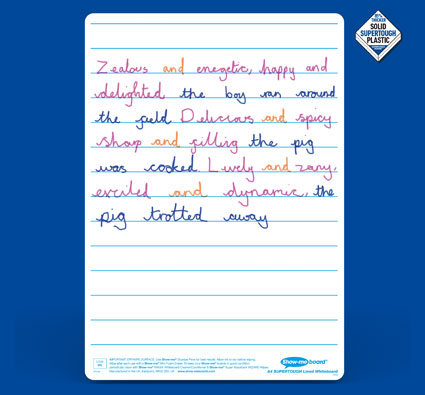 THICKER
SOLID
SUPERTOUGH
PLASTIC
Zealous and enegetic, happy and
delighted the boy ran around
the field Delicious and spicy
sharp and filling the pig
was cooked. Lively and zany,
excited and dynamic, the
pig trotted away
Show-me board
A4 SUPERTOUGH Lined Whiteboard